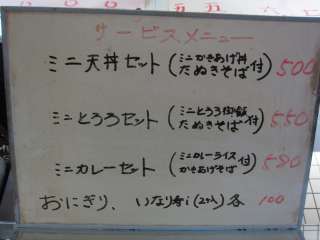 サービスメニュー
ミニ天丼セット (ミニかきあげ丼 たぬきそば付) 500
ミニとろろセット (ミニとろろ御飯 たぬきそば付) 550
ミニカレーセット (ミニカレーライス かきあげそば付) 580
おにぎり、いなり寿し(2ヶ入) 各 100